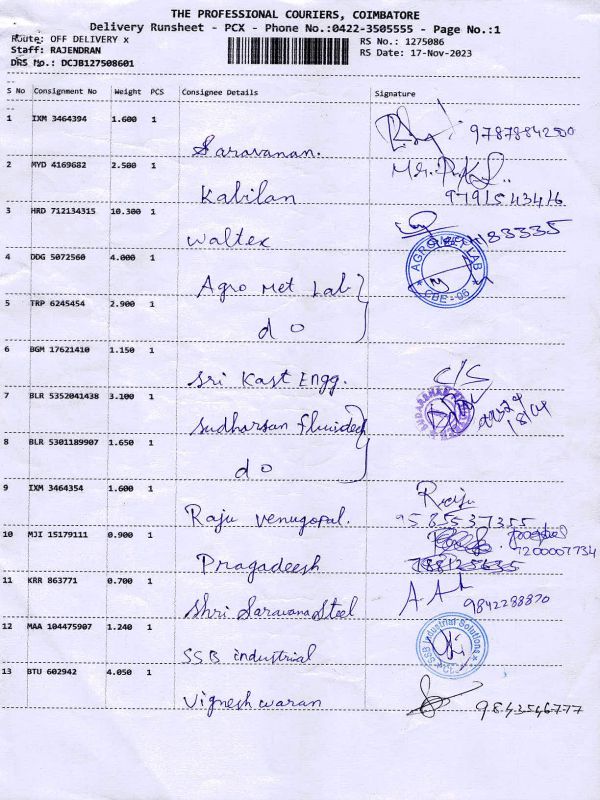 THE PROFESSIONAL COURIERS, COIMBATORE
Delivery Runsheet - PCX - Phone No.:0422-3505555 - Page No.:1
Route: OFF DELIVERY x
Staff: RAJENDRAN
DRS No.: DCJB127508601
RS No.: 1275086
RS Date: 17-Nov-2023
S No Consignment No Weight PCS Consignee Details Signature
1 IXM 3464394 1.600 1 Saravanan. 97878842500
2 MYD 4169682 2.500 1 Kabilan 9791543416
3 HRD 712134315 10.300 1 Waltex
4 DDG 5072560 4.000 1 Agro Met Lab
AGRO LAB CBE-06
5 TRP 6245454 2.900 1 do
6 BGM 17621410 1.150 1 Sri Kast Engg. C/S
7 BLR 5352041438 3.100 1 Sudharsan
8 BLR 5301189907 1.650 1 do
9 IXM 3464354 1.600 1 Raju Venugopal. Raju
9585537355
10 MJI 15179111 0.900 1 Pragadeesh 7200007734
11 KRR 863771 0.700 1 Shri Saravana Steel 9842288870
12 MAA 104475907 1.240 1 SSB industrial
SSB Industrial Solutions
13 BTU 602942 4.050 1 Vigneshwaran 9843546777